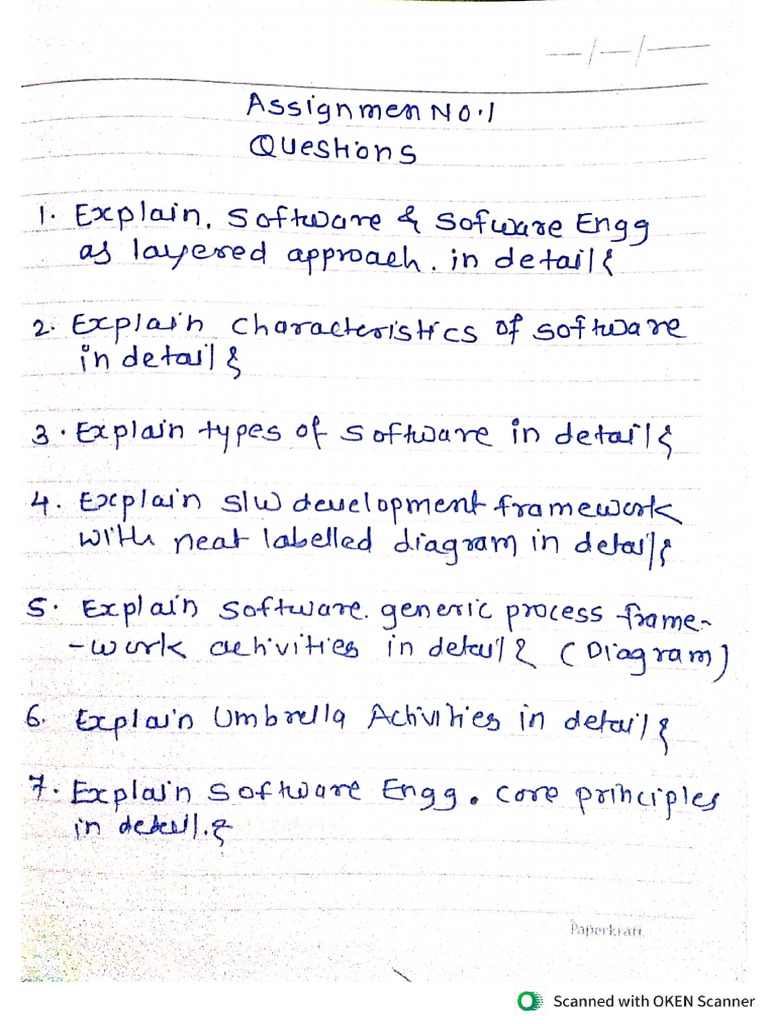 —/—/—
Assignmen No.1
Questions
1. Explain. Software & Sofware Engg
as layered approach. in detail
2. Explain characteristics of software
in detail
3. Explain types of software in detail
4. Explain s/w development framework
with neat labelled diagram in detail
5. Explain software. generic process frame-
-work activities in detail (Diagram)
6. Explain Umbrella Activities in detail
7. Explain software Engg. core principles
in detail.
Paperkraft
Scanned with OKEN Scanner